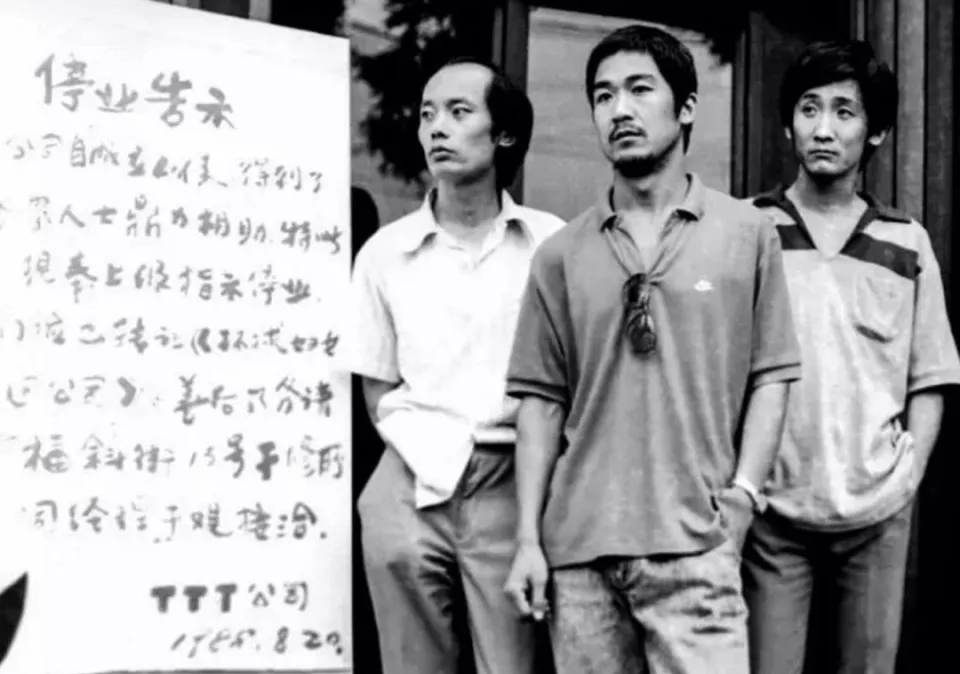 停业告示
公司自成立以来,得到了
各界人士鼎力相助,特此
现奉上级指示停业.
已转让《环球妇女
公司》.善后事务请
斜街15号
同经理于观接洽.
TTT公司
1988.8.20.